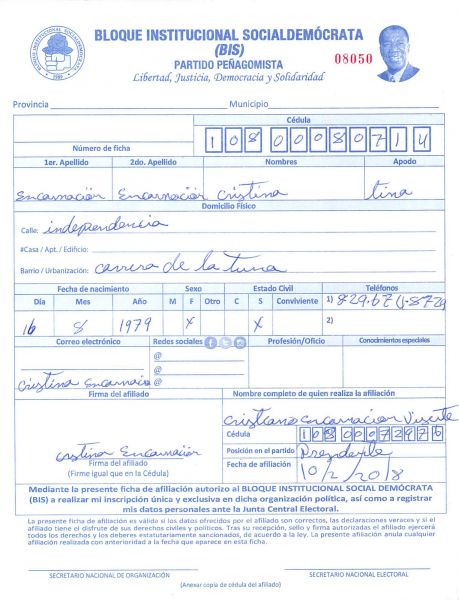 BLOQUE INSTITUCIONAL SOCIALDEMÓCRATA
(BIS)
PARTIDO PEÑAGOMISTA
Libertad, Justicia, Democracia y Solidaridad
08050
Provincia Municipio
Cédula
Número de ficha 108 0008071 4
1er. Apellido 2do. Apellido Nombres Apodo
Encarnación Encarnación Cristina tina
Domicilio Físico
Calle: independencia
#Casa / Apt. / Edificio:
Barrio / Urbanización: carrera de la tuna
Fecha de nacimiento Sexo Estado Civil Teléfonos
Día Mes Año M F Otro C S Conviviente 1) 829.67
16 8 1979 X X 2)
Correo electrónico Redes sociales Profesión/Oficio Conocimientos especiales
@
@
Cristina Encarnacio @
Firma del afiliado Nombre completo de quien realiza la afiliación
Cristiano Encarnacion Vicente
Cédula 108 0007297 6
Cristina Encarnación Posición en el partido Presidente
Firma del afiliado Fecha de afiliación 10/2/2018
(Firme igual que en la Cédula)
Mediante la presente ficha de afiliación autorizo al BLOQUE INSTITUCIONAL SOCIAL DEMÓCRATA
(BIS) a realizar mi inscripción única y exclusiva en dicha organización política, así como a registrar
mis datos personales ante la Junta Central Electoral.
La presente ficha de afiliación es válida si los datos ofrecidos por el afiliado son correctos, las declaraciones veraces y si el
afiliado tiene el disfrute de sus derechos civiles y políticos. Tras su recepción, sello y firma autorizadas el afiliado ejercerá
todos los derechos y los deberes estatutariamente sancionados, de acuerdo a la ley. La presente afiliación anula cualquier
afiliación realizada con anterioridad a la fecha que aparece en esta ficha.
SECRETARIO NACIONAL DE ORGANIZACIÓN SECRETARIO NACIONAL ELECTORAL
(Anexar copia de cédula del afiliado)